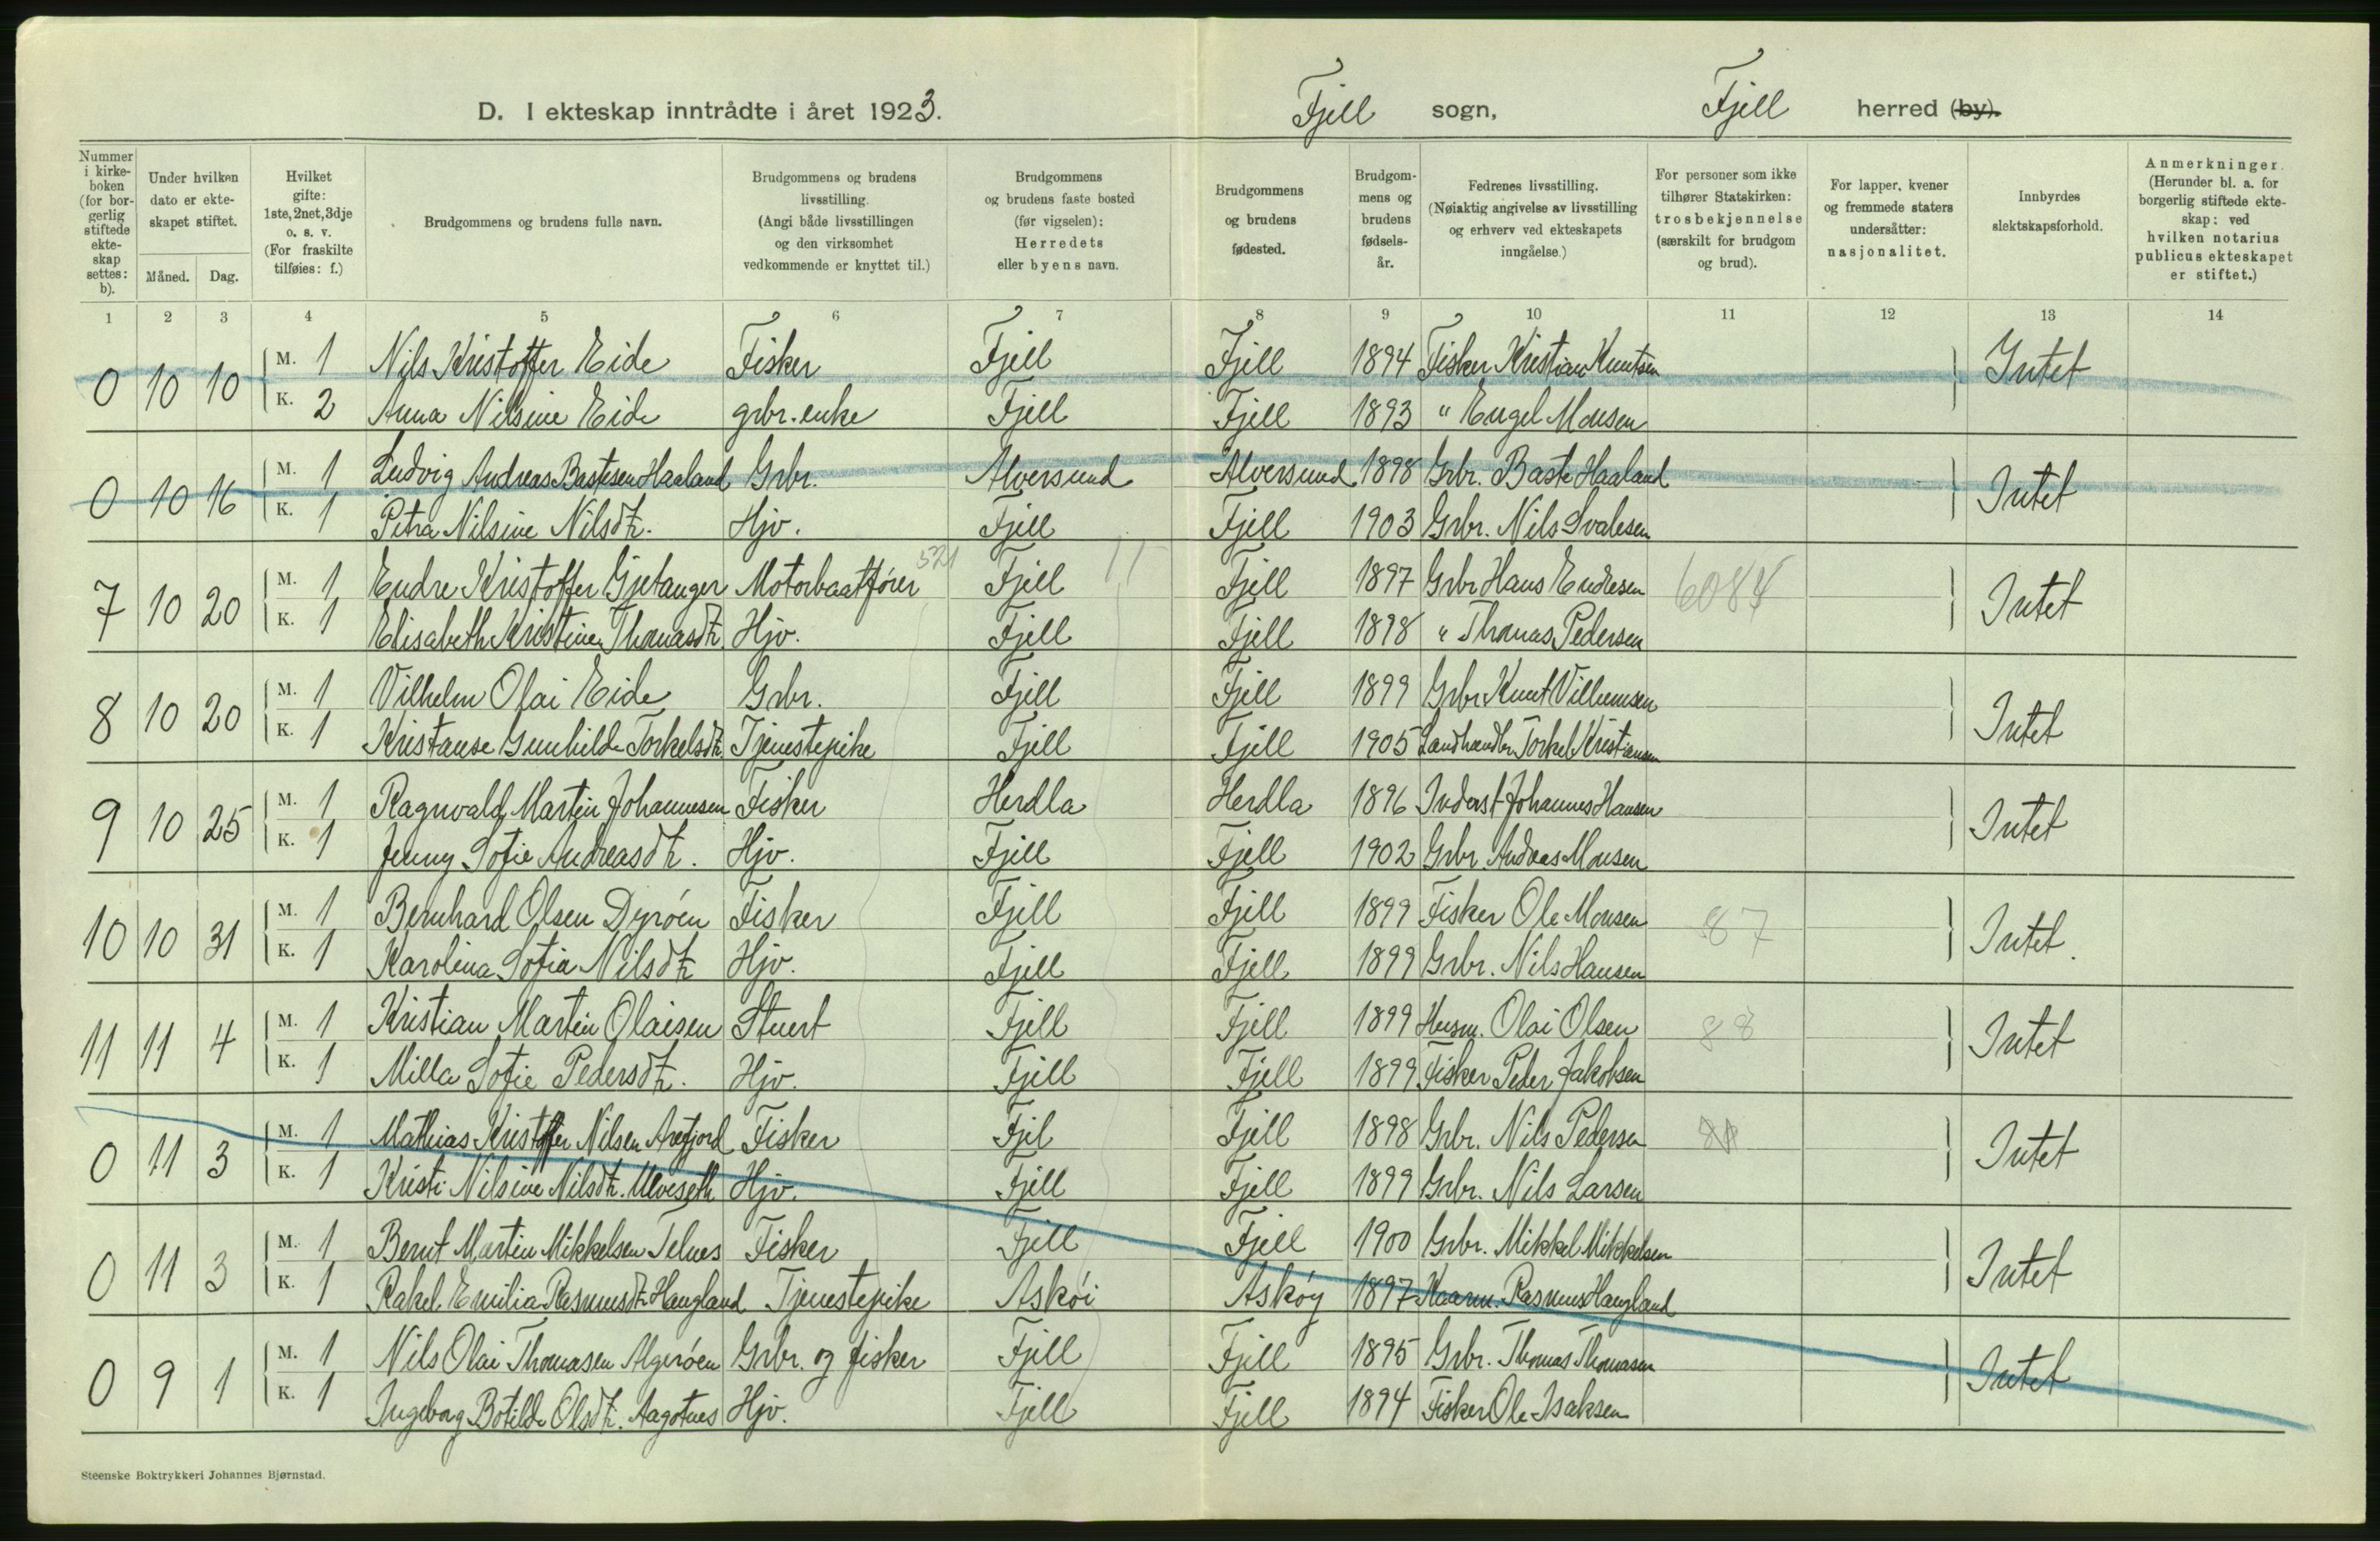 D. I ekteskap inntrådte i året 1923. Fjell sogn, Fjell herred (by).
Nummer i kirkeboken (for borgerlig stiftede ekteskap settes: b).
Under hvilken dato er ekteskapet stiftet.
Måned. Dag.
Hvilket gifte: 1ste, 2net, 3dje o. s. v. (For fraskilte tilføies: f.)
Brudgommens og brudens fulle navn.
Brudgommens og brudens livsstilling. (Angi både livsstillingen og den virksomhet vedkommende er knyttet til.)
Brudgommens og brudens faste bosted (før vigselen): Herredets eller byens navn.
Brudgommens og brudens fødested.
Brudgommens og brudens fødselsår.
Fedrenes livsstilling. (Nøiaktig angivelse av livsstilling og erhverv ved ekteskapets inngåelse.)
For personer som ikke tilhører Statskirken: trosbekjennelse (særskilt for brudgom og brud).
For lapper, kvener og fremmede staters undersåtter: nasjonalitet.
Innbyrdes slektskapsforhold.
Anmerkninger. (Herunder bl. a. for borgerlig stiftede ekteskap: ved hvilken notarius publicus ekteskapet er stiftet.)
1 2 3 4 5 6 7 8 9 10 11 12 13 14
0 10 10 M. 1 Nils Kristoffer Eide Fisker Fjell Fjell 1894 Fisker Kristian Knutsen Intet
K. 2 Anna Nilsine Eide grbr. enke Fjell Fjell 1893 " Engel Monsen
0 10 16 M. 1 Ludvig Andreas Bastesen Haaland Grbr. Alversund Alversund 1898 Grbr. Baste Haaland Intet
K. 1 Petra Nilsine Nilsdtr. Hjv. Fjell Fjell 1903 Grbr. Nils Svalesen
7 10 20 M. 1 Endre Kristoffer Gjetanger Motorbaatfører 521 Fjell 11 Fjell 1897 Grbr Hans Endresen 6084 Intet
K. 1 Elisabeth Kristine Thomasdtr. Hjv. Fjell Fjell 1898 " Thomas Pedersen
8 10 20 M. 1 Vilhelm Olai Eide Grbr. Fjell Fjell 1899 Grbr. Knut Villumsen Intet
K. 1 Kristanse Gunhilde Torkelsdtr. Tjenestepike Fjell Fjell 1905 Landhandler Torkel Kristiansen
9 10 25 M. 1 Ragnvald Martin Johannesen Fisker Herdla Herdla 1896 Inderst Johannes Hansen Intet
K. 1 Jenny Sofie Andreasdtr. Hjv. Fjell Fjell 1902 Grbr. Andreas Monsen
10 10 31 M. 1 Bernhard Olsen Dyrøen Fisker Fjell Fjell 1899 Fisker Ole Monsen 87 Intet.
K. 1 Karolina Sofia Nilsdtr Hjv. Fjell Fjell 1899 Grbr. Nils Hansen
11 11 4 M. 1 Kristian Martin Olaisen Stuert Fjell Fjell 1899 Husm. Olai Olsen 88 Intet
K. 1 Milla Sofie Pedersdtr. Hjv. Fjell Fjell 1899 Fisker Peder Jakobsen
0 11 3 M. 1 Mathias Kristoffer Nilsen Arefjord Fisker Fjel Fjell 1898 Grbr. Nils Pedersen Intet
K. 1 Kristi Nilsine Nilsdtr. Ulveseth Hjv. Fjell Fjell 1899 Grbr. Nils Larsen
0 11 3 M. 1 Bernt Martin Mikkelsen Telnes Fisker Fjell Fjell 1900 Grbr. Mikkel Mikkelsen Intet
K. 1 Rakel Emilia Rasmusdtr Haugland Tjenestepike Askøi Askøy 1897 Kaarm. Rasmus Haugland
0 9 1 M. 1 Nils Olai Thomasen Algerøen Grbr. og fisker Fjell Fjell 1895 Grbr. Thomas Thomasen Intet
K. 1 Ingeborg Botilde Olsdtr. Aagotnes Hjv. Fjell Fjell 1894 Fisker Ole Isaksen
Steenske Boktrykkeri Johannes Bjørnstad.